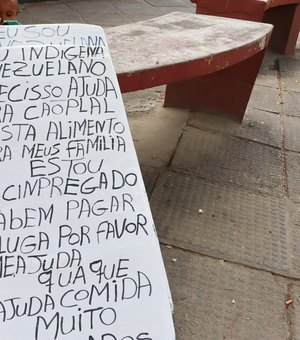 EU SOU
VENEZUELANA
U INDIGENA
VENEZUELANO
PRECISSO AJUDA
RA CAOPLAL
STA ALIMENTO
RA MEUS FAMILIA
ESTOU
CINPREGADO
ABEM PAGAR
LUGA POR FAVOR
MEAJUDA
QUA QUE
AJUDA COMIDA
MUITO